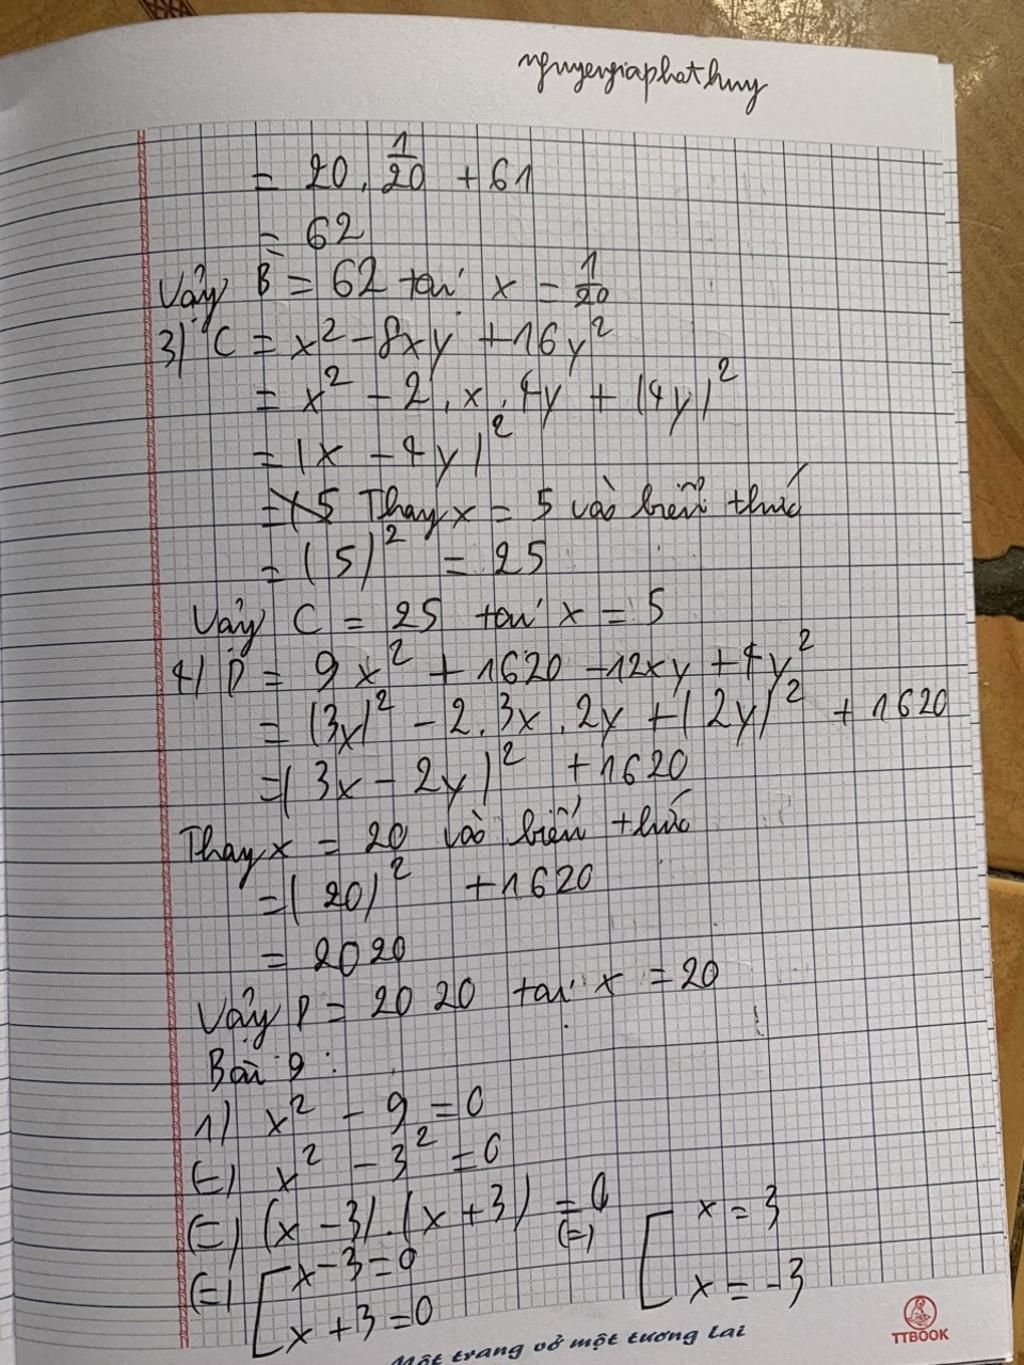 nguyengiaphathuy
= 20 . 1/20 + 61
= 62
Vậy B = 62 tại x = 1/20
3) C = x² - 8xy + 16y²
= x² - 2 . x . 4y + (4y)²
= (x - 4y)²
Thay x = 5 vào biểu thức
= (5)² = 25
Vậy C = 25 tại x = 5
4) D = 9x² + 1620 - 12xy + 4y²
= (3x)² - 2 . 3x . 2y + (2y)² + 1620
= (3x - 2y)² + 1620
Thay x = 20 vào biểu thức
= (20)² + 1620
= 2020
Vậy D = 2020 tại x = 20
Bài 9 :
1) x² - 9 = 0
(=) x² - 3² = 0
(=) (x - 3) . (x + 3) = 0
(=) [ x - 3 = 0 (=) [ x = 3
x + 3 = 0 x = -3
Một trang vở một tương lai TTBOOK